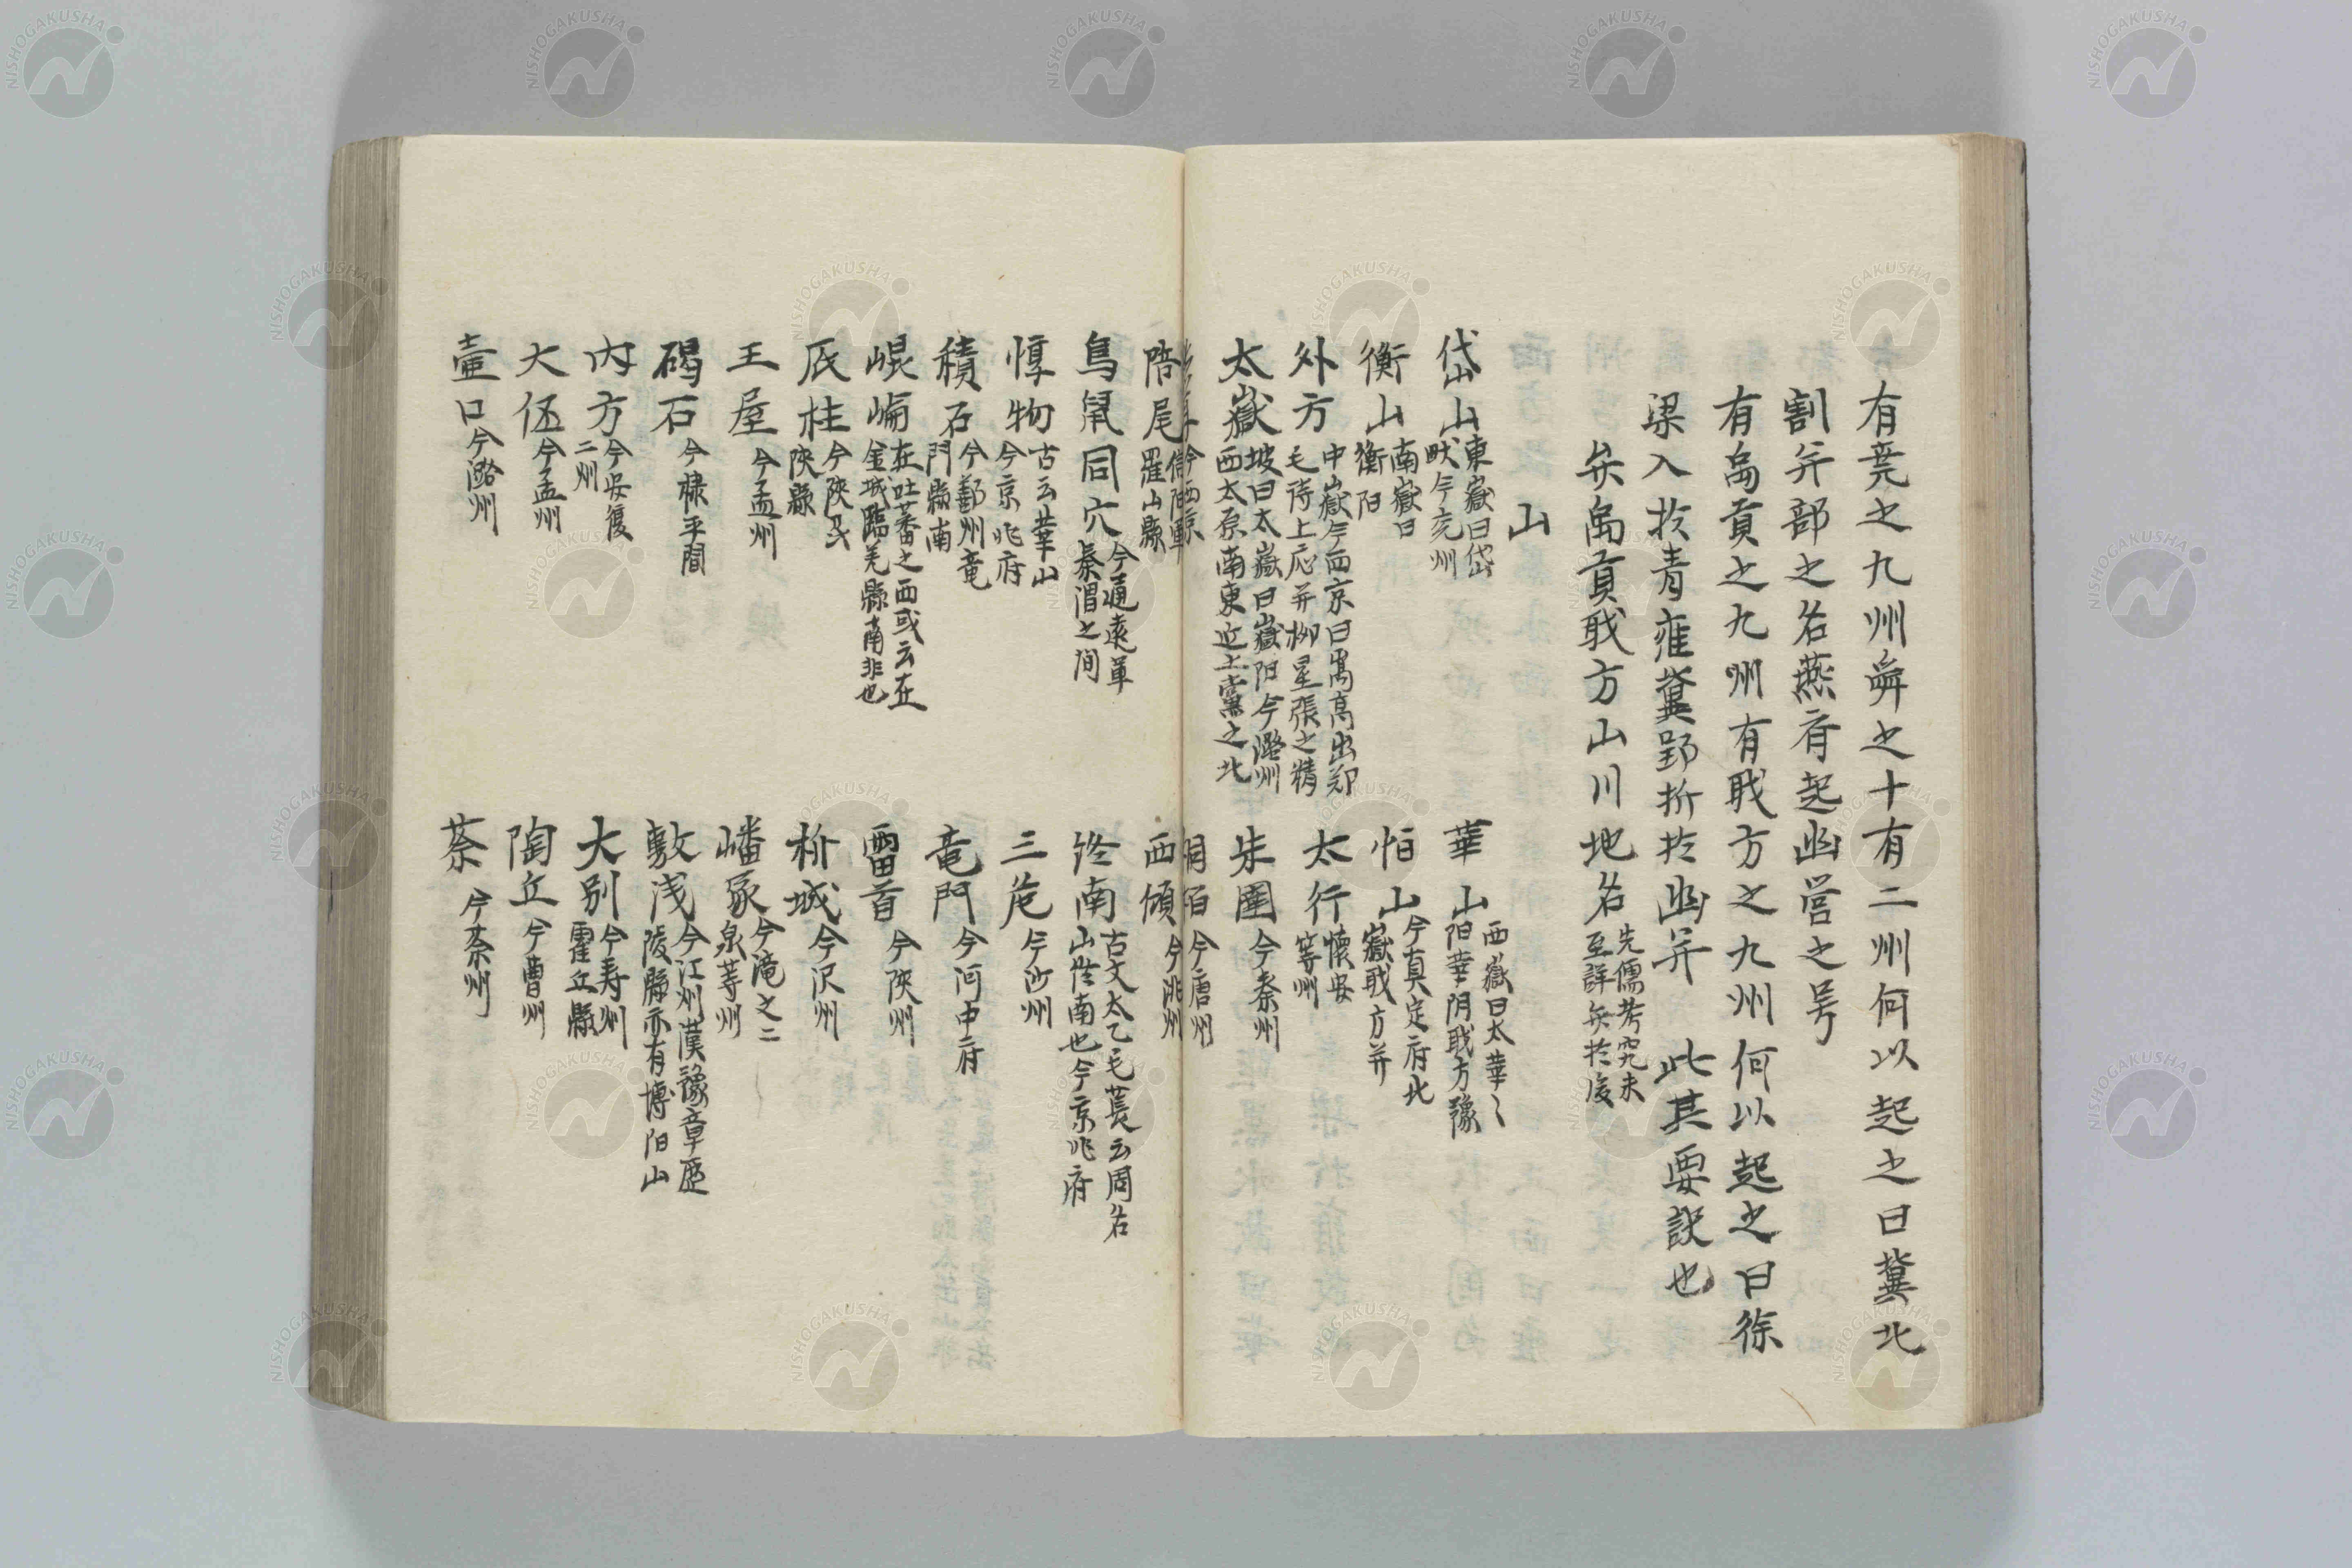 有尭之九州舜之十有二州何以起之曰冀北
割并部之名燕斉起幽営之号
有禹貢之九州有職方之九州何以起之曰徐
梁入於青雍冀野折於幽并 此其要訣也
矣禹貢职方山川地名 先儒考究未
至詳矣於後
山
岱山 東嶽曰岱
畎今兗州
華山 西嶽曰太華〻
阳華阴职方豫
衡山 南嶽曰
衡阳
恒山 今真定府北
嶽职方并
外方 中嶽今西京曰嵩高出郑
毛待上応并柳星張之精
太行 懐安
等州
太嶽 坡曰太嶽曰嶽阳今潞州
西太原南東近上黨之北
朱圉 今秦州
今西京
桐栢 今唐州
陪尾 信阳軍
羅山縣
西傾 今洮州
鳥鼠同穴 今通遠軍
秦渭之間
终南 古文太乙毛萇云周名
山终南也今京兆府
惇物 古云華山
今京兆府
三危 今沙州
積石 今鄯州竜
門縣南
竜門 今河中府
崐崘 在吐蕃之西或云在
金城臨羌縣南非也
雷首 今陝州
厎柱 今陝州
陝縣
析城 今沢州
王屋 今孟州
嶓冢 今滝之二
泉䓁州
碣石 今禄平間
敷浅 今江州漢豫章歴
陵縣亦有博阳山
内方 今安復
二州
大别 今寿州
霍丘縣
大伾 今孟州
陶丘 今曹州
壷口 今潞州
蔡 今蔡州
NISHOGAKUSHA